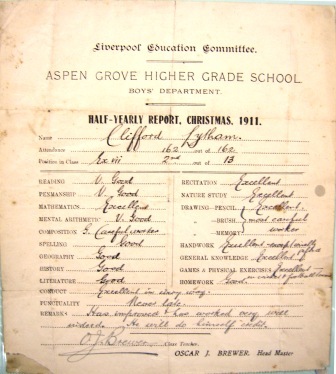 Liverpool Education Committee.
ASPEN GROVE HIGHER GRADE SCHOOL.
BOYS' DEPARTMENT.
HALF-YEARLY REPORT, CHRISTMAS, 1911.
Name Clifford Lytham.
Attendance 162 out of 162
Position in Class Ex vii 2nd out of 13
READING V. Good
PENMANSHIP V. Good
MATHEMATICS Excellent
MENTAL ARITHMETIC V. Good
COMPOSITION G. Careful worker
SPELLING Good
GEOGRAPHY Good
HISTORY Good
LITERATURE Good
RECITATION Excellent
NATURE STUDY Excellent
DRAWING—PENCIL Excellent.
BRUSH most careful
MEMORY worker
HANDWORK Excellent
GENERAL KNOWLEDGE Excellent
GAMES & PHYSICAL EXERCISES Excellent
HOMEWORK Good.
CONDUCT Excellent in every way.
PUNCTUALITY Never late.
REMARKS Has improved & has worked very well
indeed. He will do himself credit.
O. J. Brewer Class Teacher.
OSCAR J. BREWER, Head Master